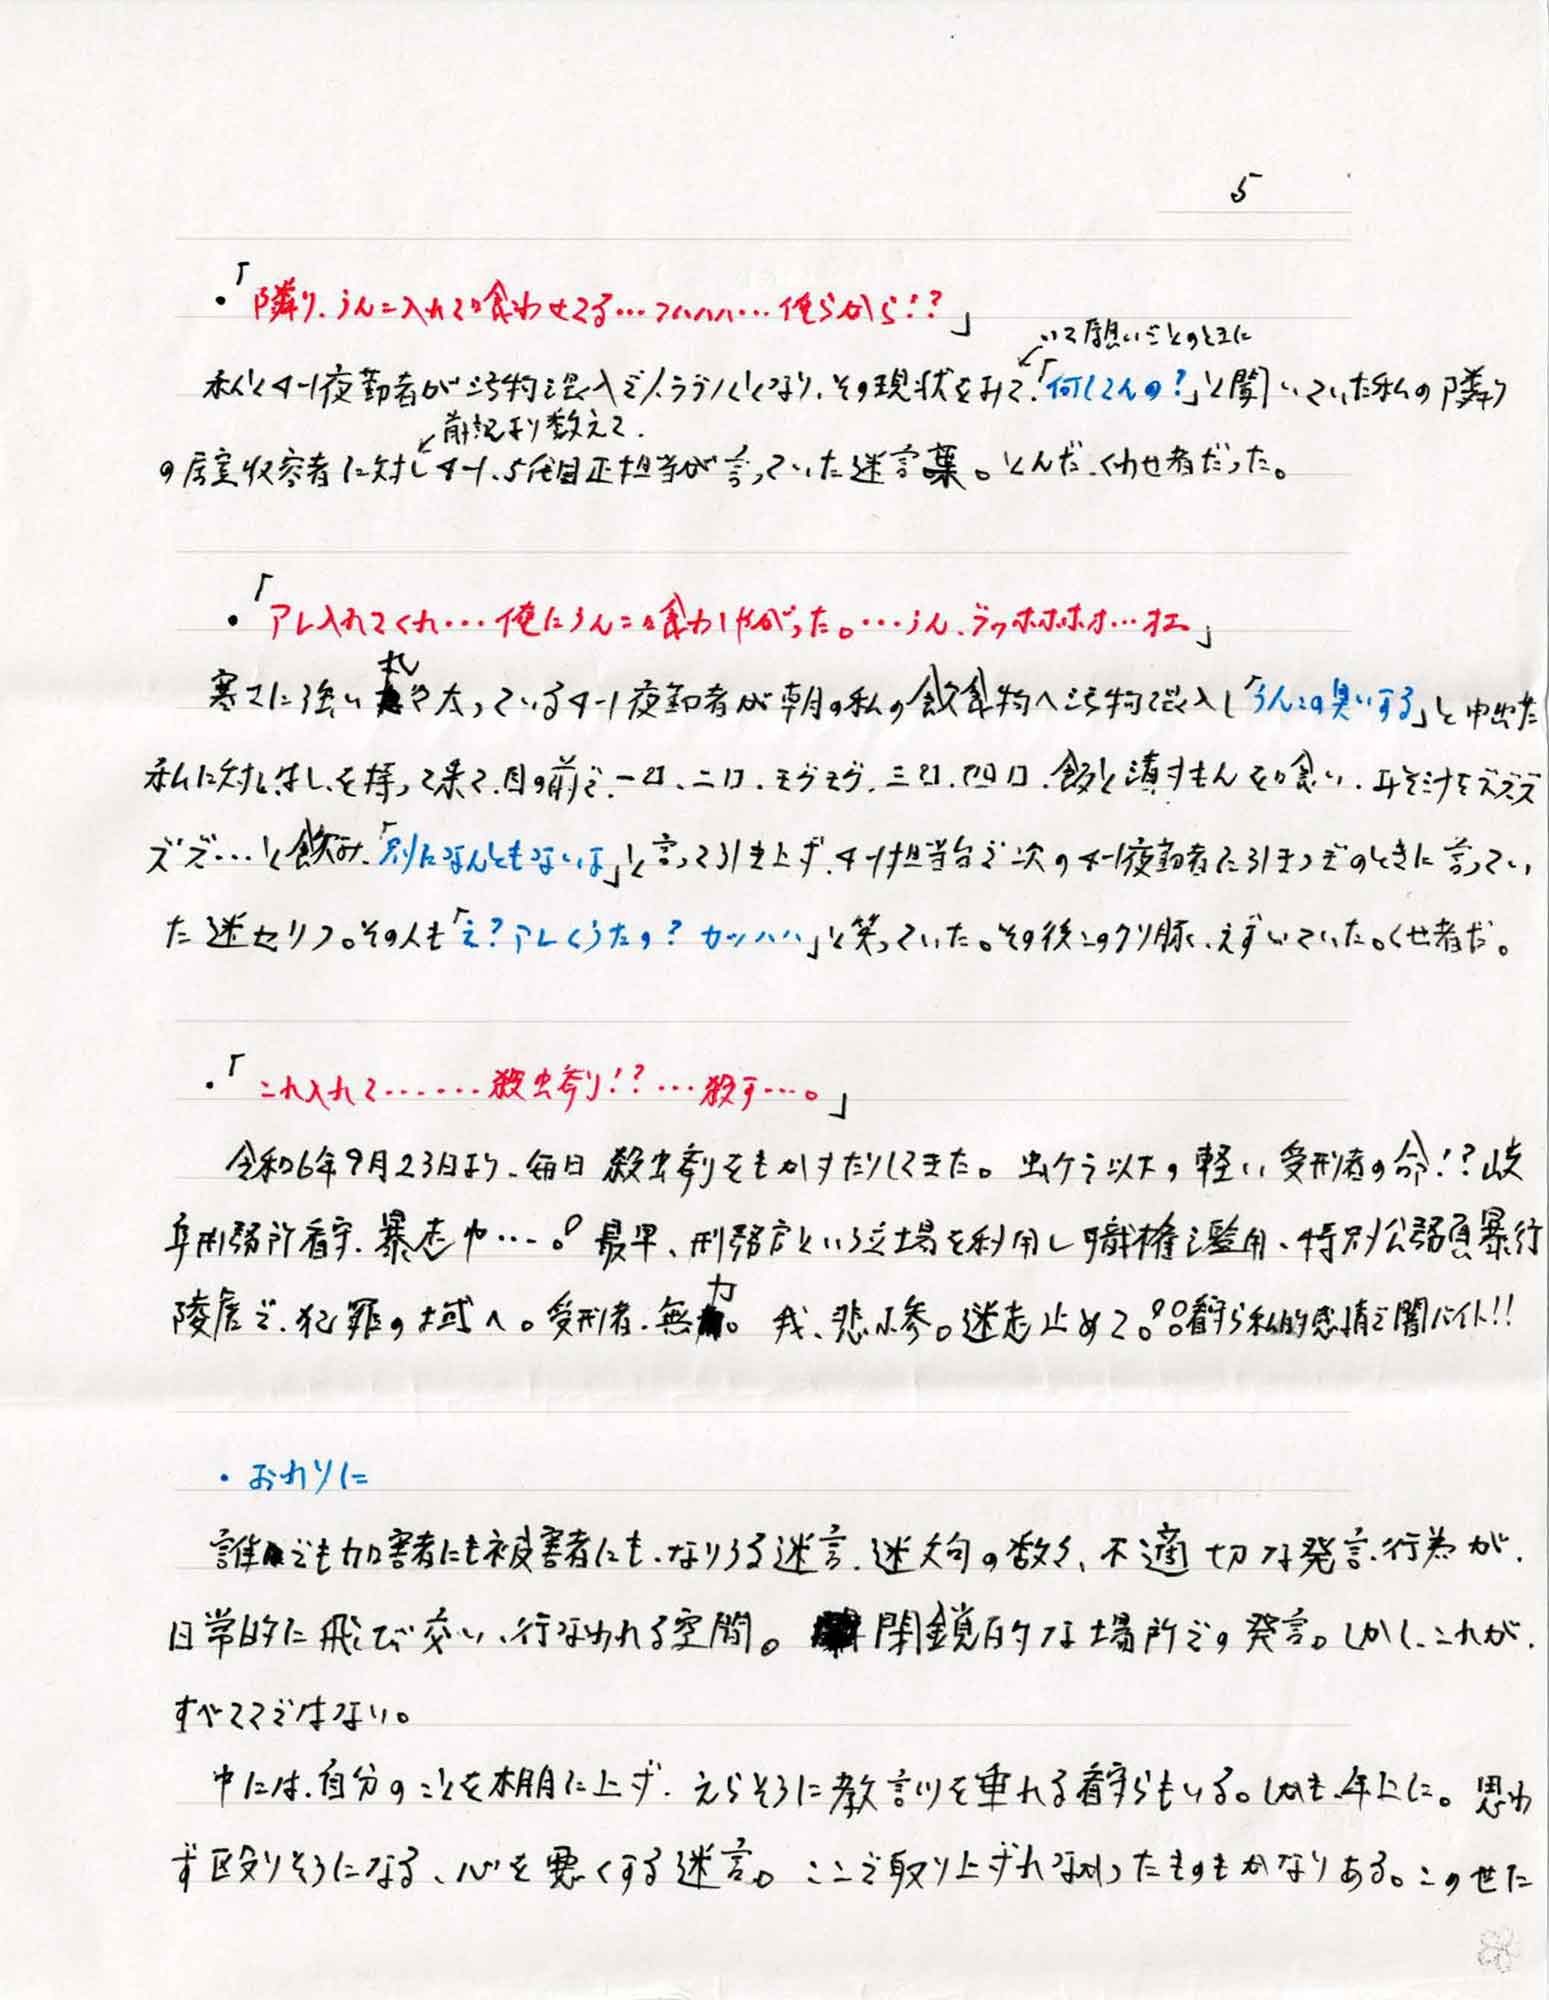 5
・「隣り、うんこ入れて喰わせてる…フハハハ…俺らから!?」
いて願いごとのときに
私と4-1夜勤者が汚物混入でトラブルとなり、その現状をみて、「何してんの?」と聞いていた私の隣り
前記より数えて、
の居室収容者に対し4-1、5代目正担当が言っていた迷言葉。とんだ、くわせ者だった。
・「アレ入れてくれ…俺にうんこ喰わしやがった。…うん、ヴッホホホホ…オエ」
寒さに強い丸々太っている4-1夜勤者が朝の私の飲食物へ汚物混入し「うんこの臭いする」と申出た
私に対し、はしを持って来て、目の前で、一口、二口、モグモグ、三口、四口、飯と漬すもんを喰い、みそ汁をズズズ
ズズ…と飲み、「別になんともないは」と言って引き上げ、4-1担当台で次の4-1夜勤者に引きつぎのときに言ってい
た迷セリフ。その人も「え?アレくうたの?カッハハハ」と笑っていた。その後このクソ豚、えずいていた。くせ者だ。
・「これ入れて……殺虫剤!?…殺す…。」
令和6年9月23日より、毎日殺虫剤をもかすだしてきた。虫ケラ以下の軽い受刑者の命!?岐
阜刑務所看守、暴走中…。最早、刑務官という立場を利用し職権濫用、特別公務員暴行
陵虐で、犯罪の域へ。受刑者、無力。我、悲惨。迷走止めて。看守ら私的感情で闇バイト!!
・おわりに
誰でも加害者にも被害者にも、なりうる迷言、迷文句の数々、不適切な発言、行為が、
日常的に飛び交い、行なわれる空間。閉鎖的な場所での発言。しかし、これが、
すべてではない。
中には、自分のことを棚に上げ、えらそうに教訓を垂れる看守らもいる。しかも、年上に。思わ
ず区切りそうになる、心を悪くする迷言。ここで取り上げれなかったものもかなりある。このせた